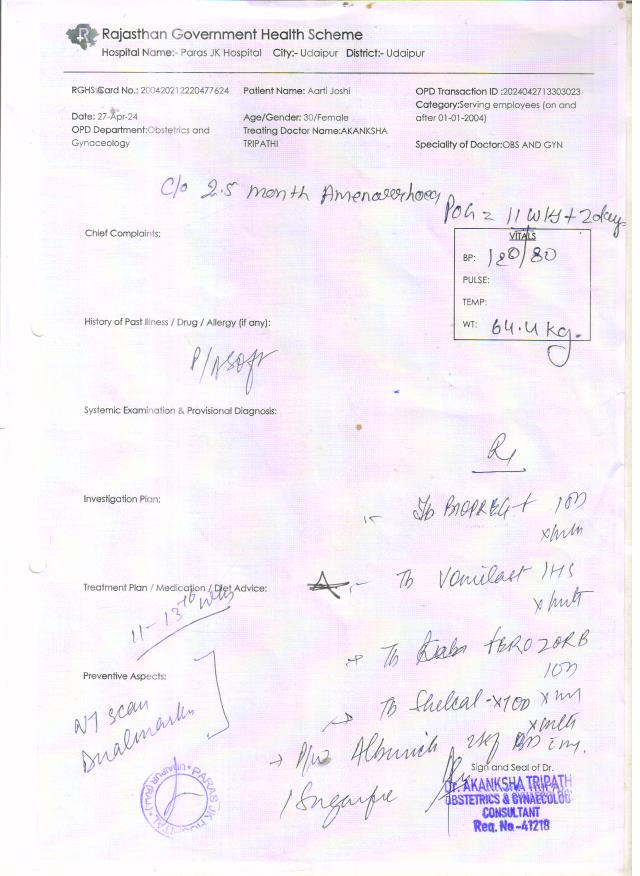 Rajasthan Government Health Scheme
Hospital Name:- Paras JK Hospital City:- Udaipur District:- Udaipur
RGHS Card No.: 200420212220477624 Patient Name: Aarti Joshi OPD Transaction ID :2024042713303023
Category:Serving employees (on and after 01-01-2004)
Date: 27-Apr-24 Age/Gender: 30/Female
OPD Department:Obstetrics and Gynaceology Treating Doctor Name:AKANKSHA TRIPATHI Speciality of Doctor:OBS AND GYN
C/o 2.5 month Amenorrhoea
POG = 11 Wks + 2 days
Chief Complaints:
VITALS
BP: 120/80
PULSE:
TEMP:
WT: 64.4 kg.
History of Past Illness / Drug / Allergy (if any):
P/A Soft
Systemic Examination & Provisional Diagnosis:
Rx
Investigation Plan:
Tb BIOPREG + 1OD
Treatment Plan / Medication / Diet Advice:
Tb Vomilast 1HS
11-13+6 wks
Tb FEROZORB
1OD
Preventive Aspects:
NT scan
Dualmarker
Tb Shelcal-XT
OD
Sign and Seal of Dr.
/ Sugarfree
Dr. AKANKSHA TRIPATH
OBSTETRICS & GYNAECOLOG
CONSULTANT
Reg. No.-41218
PARAS JK HOSPITAL